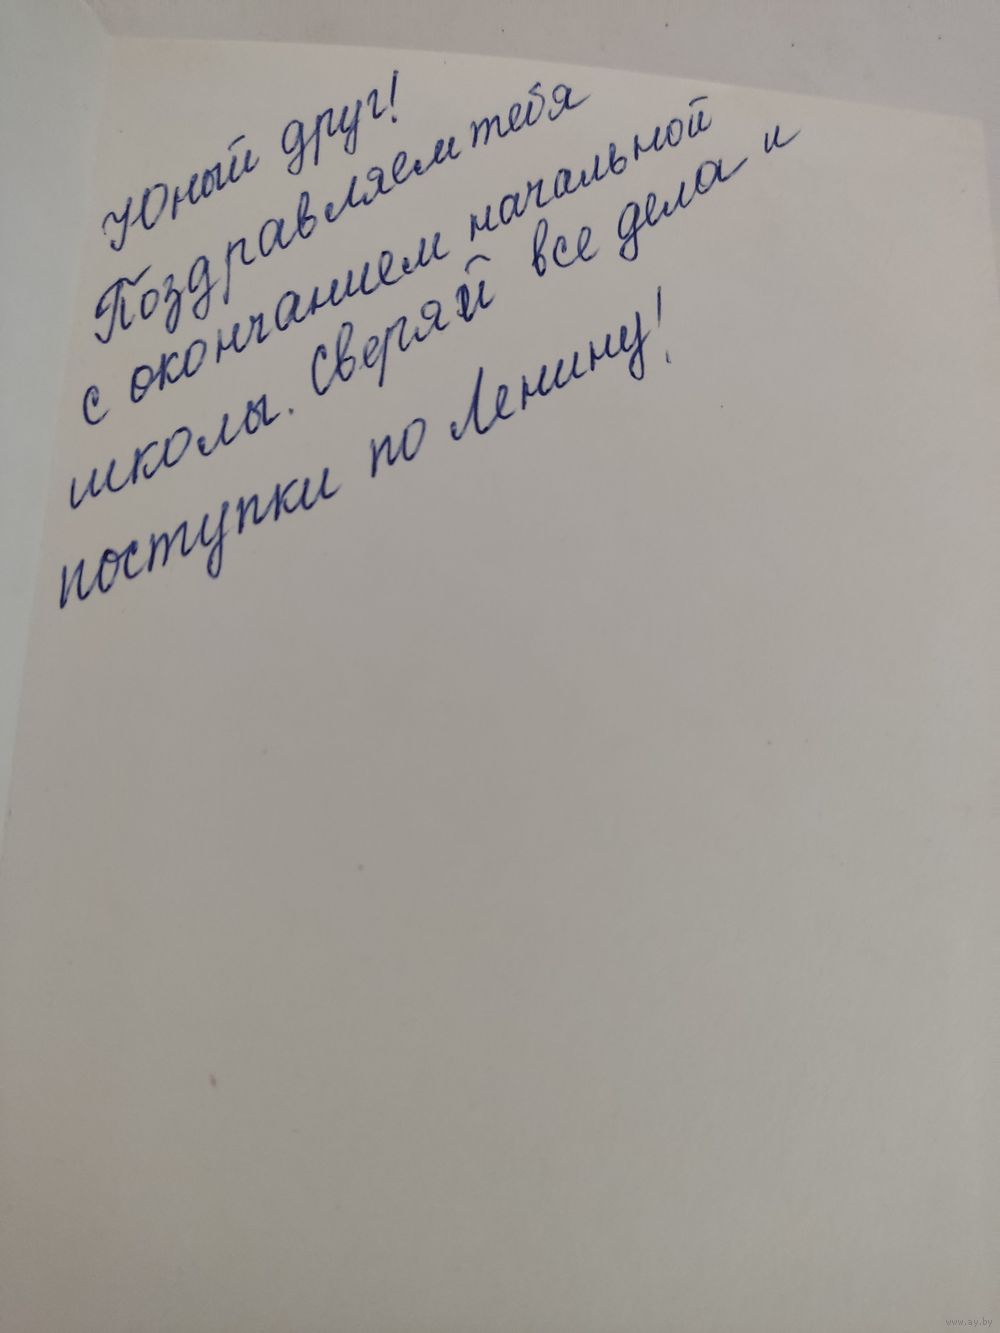 Юный друг!
Поздравляем тебя
с окончанием начальной
школы. Сверяй все дела и
поступки по Ленину!
www.ay.by